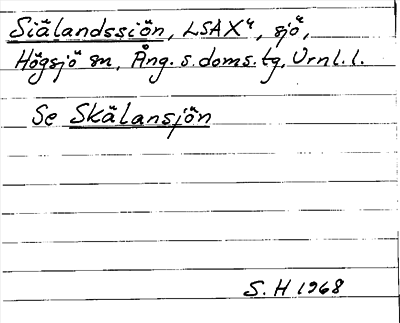 Siälandssiön, LSAX4, sjö,
Högsjö sn, Ång. s. doms. tg, Urnl. l.
Se Skälansjön
S. H 1968